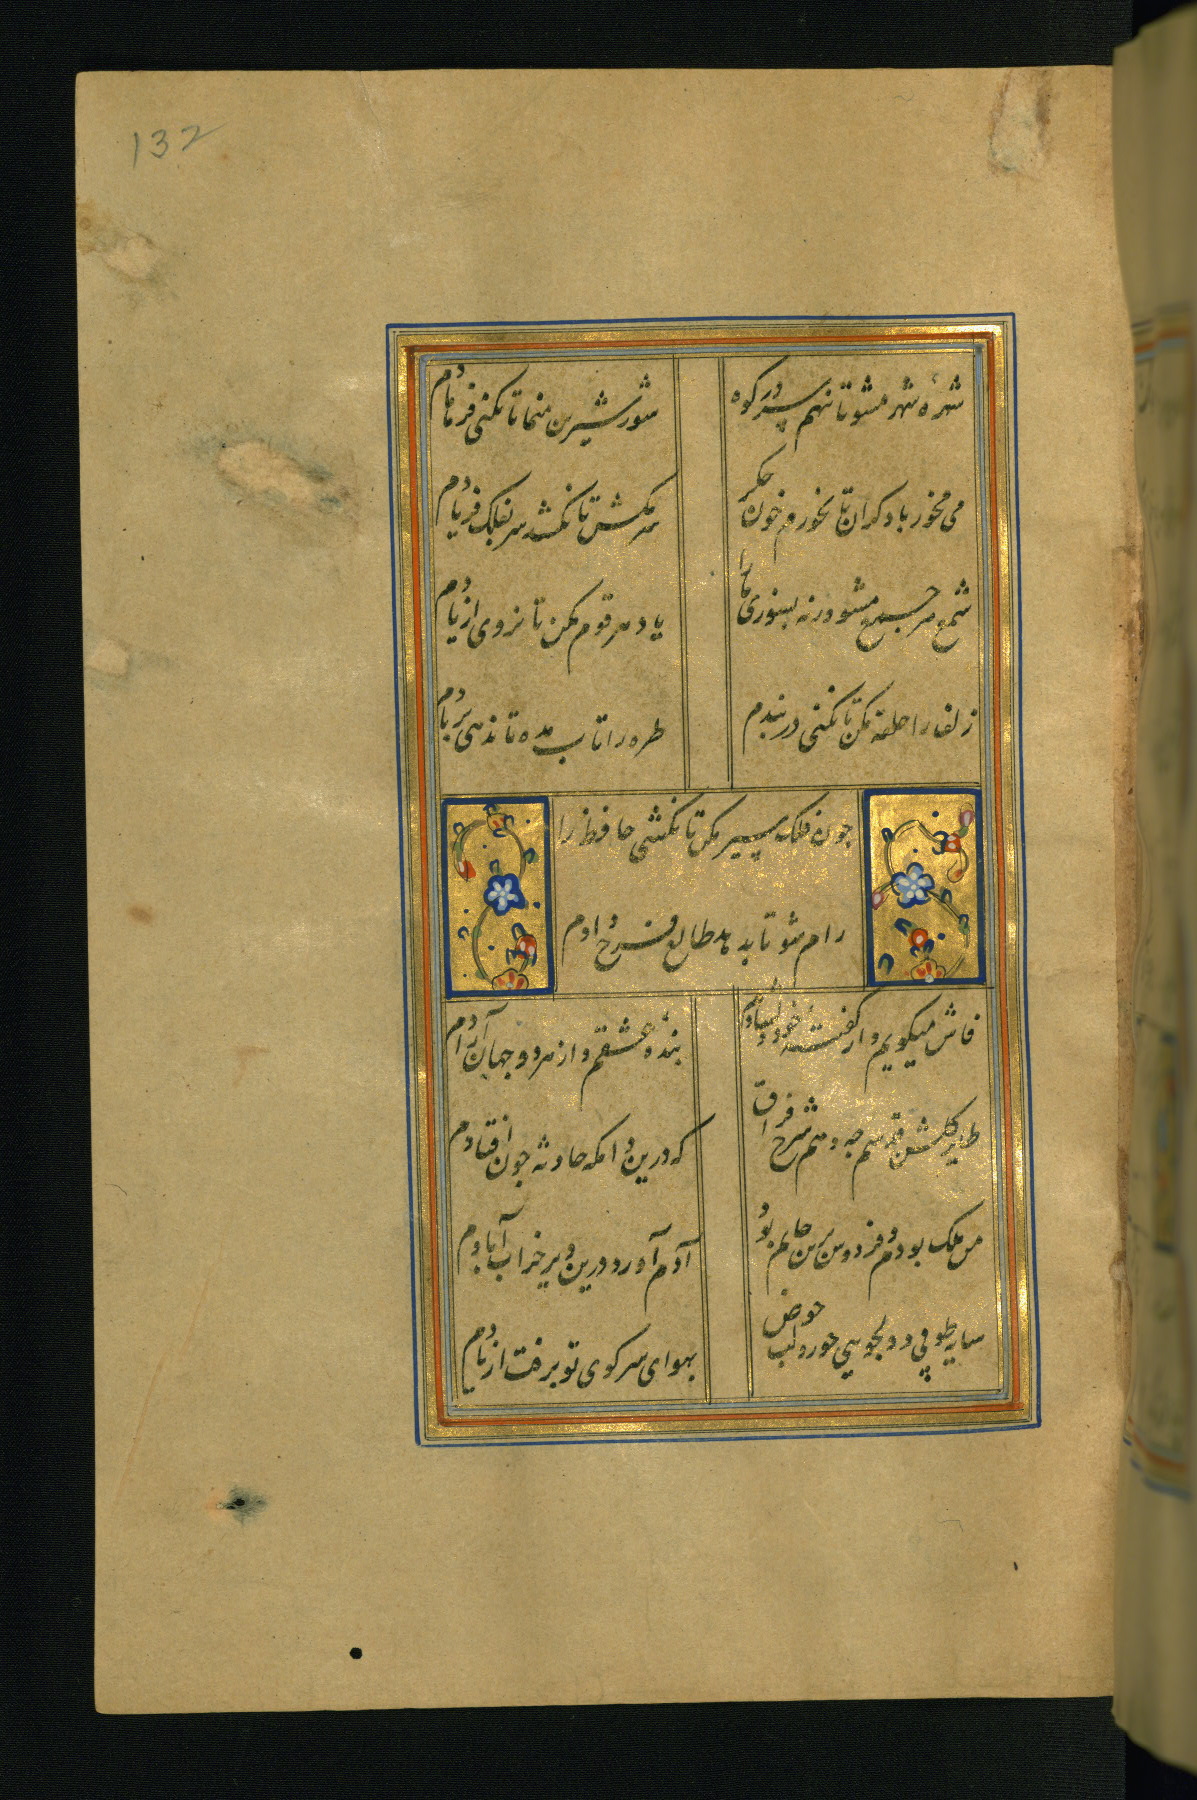 132
شهرهٔ شهر مشو تا ننهم سر در کوه
شور شیرین منما تا نکنی فرهادم
می مخور با دکران تا نخورم خون جکر
سر مکش تا نکشد سر بفلک فریادم
شمع هر جمع مشو ورنه بسوزی ما را
یاد هر قوم مکن تا نروی از یادم
زلف را حلقه مکن تا نکنی در بندم
طره را تاب مده تا ندهی بر بادم
چون فلک سیر مکن تا نکشی حافظ را
رام شو تا بدهد طالع فرخ دادم
فاش میکویم و از کفتهٔ خود دلشادم
بندهٔ عشقم و از هر دو جهان آزادم
طایر کلشن قدسم چه دهم شرح فراق
که درین دامکه حادثه چون افتادم
من ملک بودم و فردوس برین جایم بود
آدم آورد درین دیر خراب آبادم
سایه طوبی و دلجویی حور و لب حوض
بهوای سر کوی تو برفت از یادم